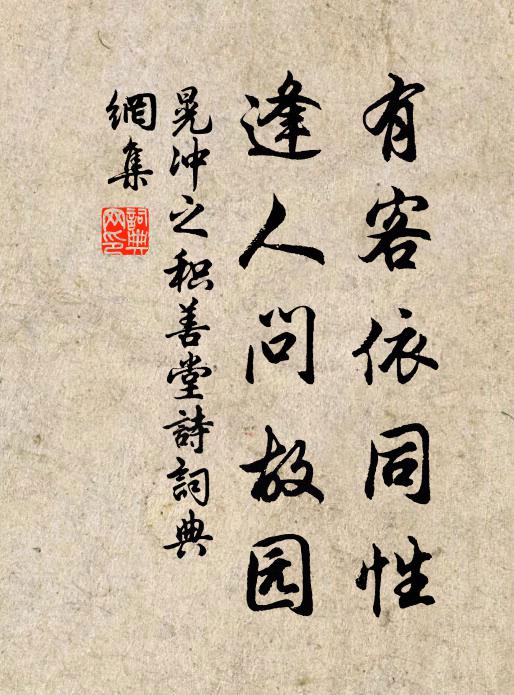 有客依同性
逢人问故园
晁冲之积善堂詩詞典
網集
詞典网印